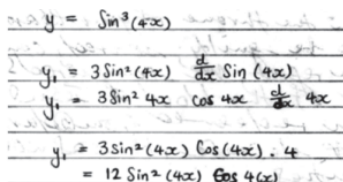 y = Sin³(4x)
y₁ = 3Sin²(4x) d/dx Sin (4x)
y₁ = 3Sin² 4x cos 4x d/dx 4x
y₁ = 3sin²(4x) Cos(4x) . 4
= 12 Sin²(4x) Cos 4(x)